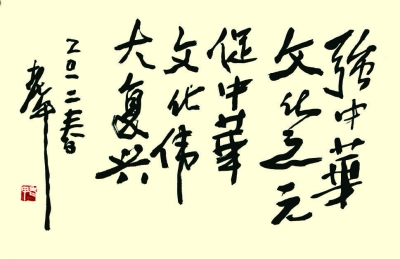 强中华
文化之元
促中华
文化伟
大复兴
二〇一二春